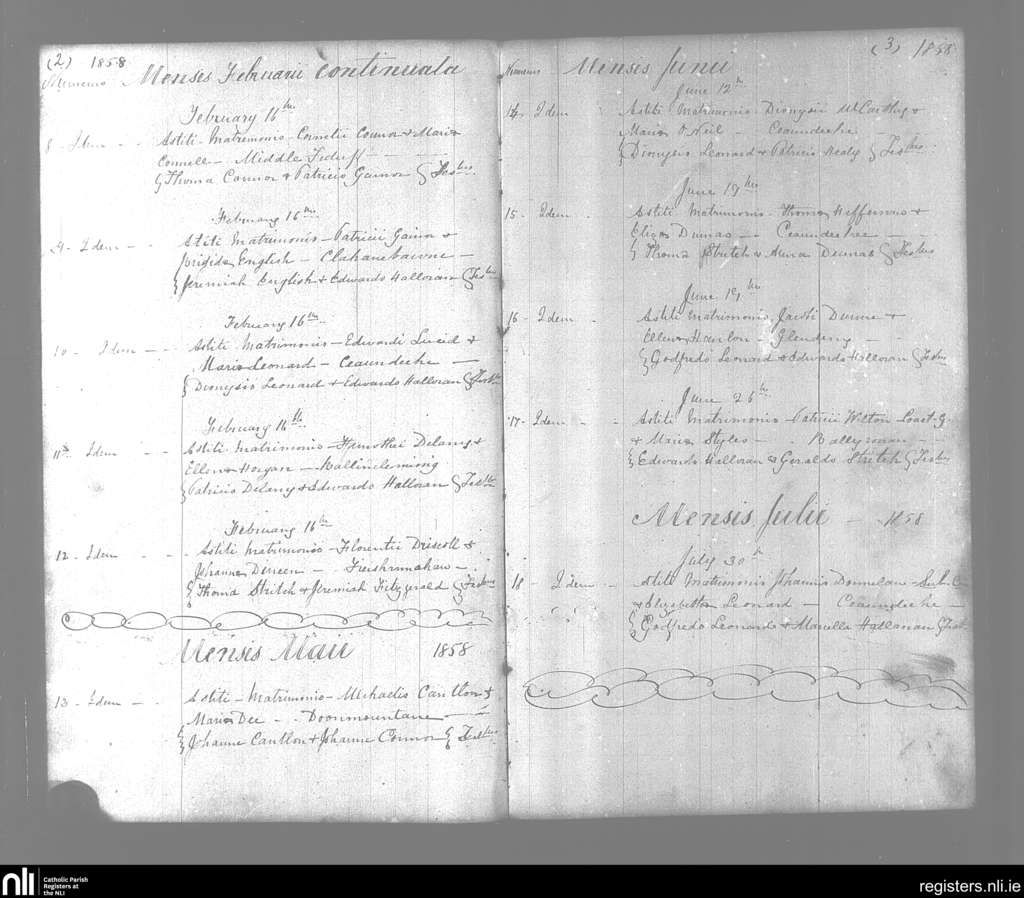 (2) 1858
Numerus Menses Februarii Continuata
February 16th
8 - Idem - - Astiti - Matrimonio - Cornelii Connor & Maria
Connell - Middle
{Thoma Connor & Patricio Gainor } Testes
February 16th
9 - Idem - - Astiti Matrimonio - Patricii Gainor &
Brigida English - Clahanebawne -
{Jeremiah English & Edwardo Halloran {Testes
February 16th
10 - Idem - - - Astiti - Matrimonio - Edwardi Lucid &
Maria Leonard - Ceaundeehe -
{Dionysio Leonard & Edwardo Halloran {Testes
February 16th
11th Idem - - - Astiti - Matrimonio - Delany &
Ellena Horgan -
{Patricio Delany & Edwardo Halloran {Testes
February 16th
12 - Idem - - - Astiti Matrimonio - Florentii Driscoll &
Johanna -
{Thoma Stritch & Jeremiah Fitzgerald {Testes
Mensis Maii 1858
13 - Idem - - Astiti - Matrimonio - Michaelis Cantlon &
Maria Dee - - Doonmountane -
{Johanne Cantlon & Johanne Connor { Testes
(3) 1858
Numerus Mensis Junii
June 12th
14 - Idem Astiti Matrimonio - Dionysii McCarthy &
Maria O Neil - Ceaundeehe
{Dionysio Leonard & Patricio Healy } Testes
June 19th
15 - Idem - Astiti Matrimonio - Thoma Heffernns &
Eliza - Ceaundeehe - -
{ Thoma Stritch & Anna {Testes
June 19th
16 - Idem - Astiti Matrimonio, Jacobi Dunne &
Ellena Hanlon -
{Godfredo Leonard & Edwardo Halloran {Testes
June 26th
17 - Idem - - Astiti Matrimonio - Patricii Wilton Coast. G.
& Maria Styles - Ballyronan - -
{Edwardo Halloran & Geraldo Stritch {Testes
Mensis Julii - 1858
July 30th
18 - Idem - - Astiti Matrimonio Johannis Donnelan -
& Elizabetha Leonard - Ceaundeehe -
{Godfredo Leonardo & Mariella Hallanan {Test
nli
Catholic Parish
Registers at
the NLI
registers.nli.ie